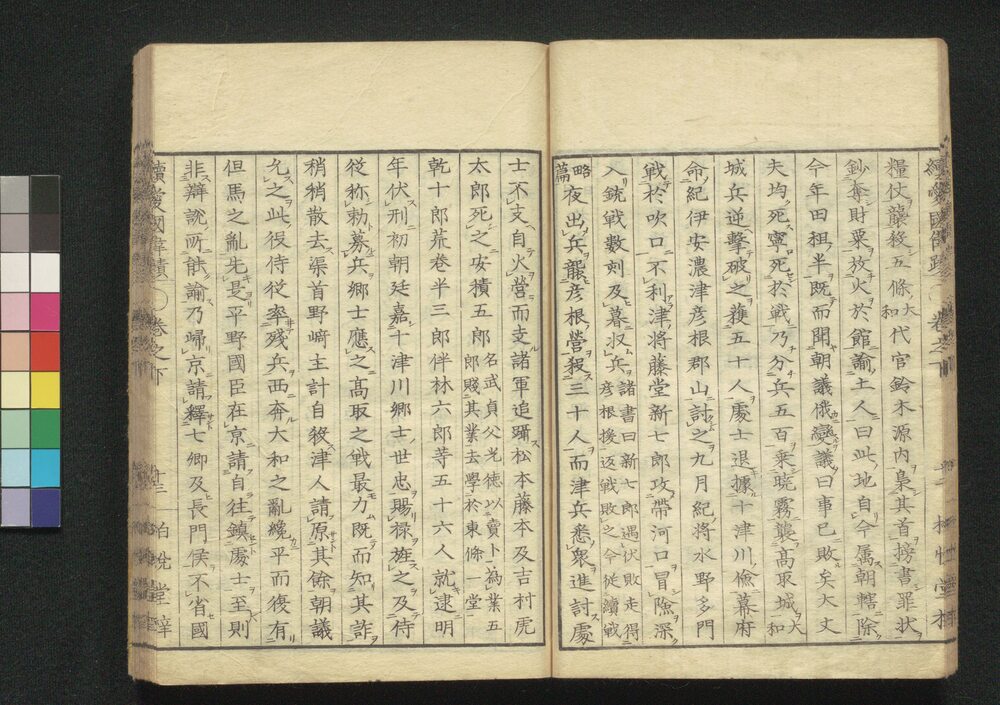 糧仗籐殺五條(大和)代官鈴木源内梟其首榜書罪狀
鈔奪財粟放火於館諭土人曰此地自今属朝轄除
今年田租半既而聞朝議俄變議曰事已敗矣大丈
夫均死寧死於戰乃分兵五百乗曉霧襲髙取城(大和)
城兵逆擊破之獲五十人處士退據十津川儉幕府
命紀伊安濃津彦根郡山討之九月紀將水野多門
戰於吹口不利津將藤堂新七郎攻帶河口冒險深
入銃戰數刻及暮収兵諸書曰新七郎遇伏敗走得彦根援返戰敗之今從續戰
略篇夜出兵襲彦根營殺三十人而津兵悉衆進討處
士不支自火營而走諸軍追躡松本藤本及吉村虎
太郎死之安積五郎名武貞父光徳以賣卜為業五郎賤其業去學於東條一堂
乾十郎荒巻半三郎伴林六郎等五十六人就逮明
年伏刑初朝廷嘉十津川鄉士世忠賜禄旌之及侍
從称勅募兵鄉士應之髙取之戰最力既而知其詐
稍稍散去渠首野﨑主計自殺津人請原其餘朝議
允之此役侍從率殘兵西奔大和之亂纔平而復有
但馬之亂先是平野國臣在京請自往鎮處士至則
非辯說所能諭乃歸京請釋七卿及長門侯不省國
續愛國偉績 卷之下